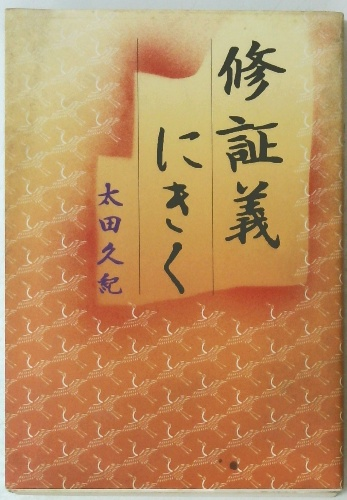 修証義
にきく
太田久紀